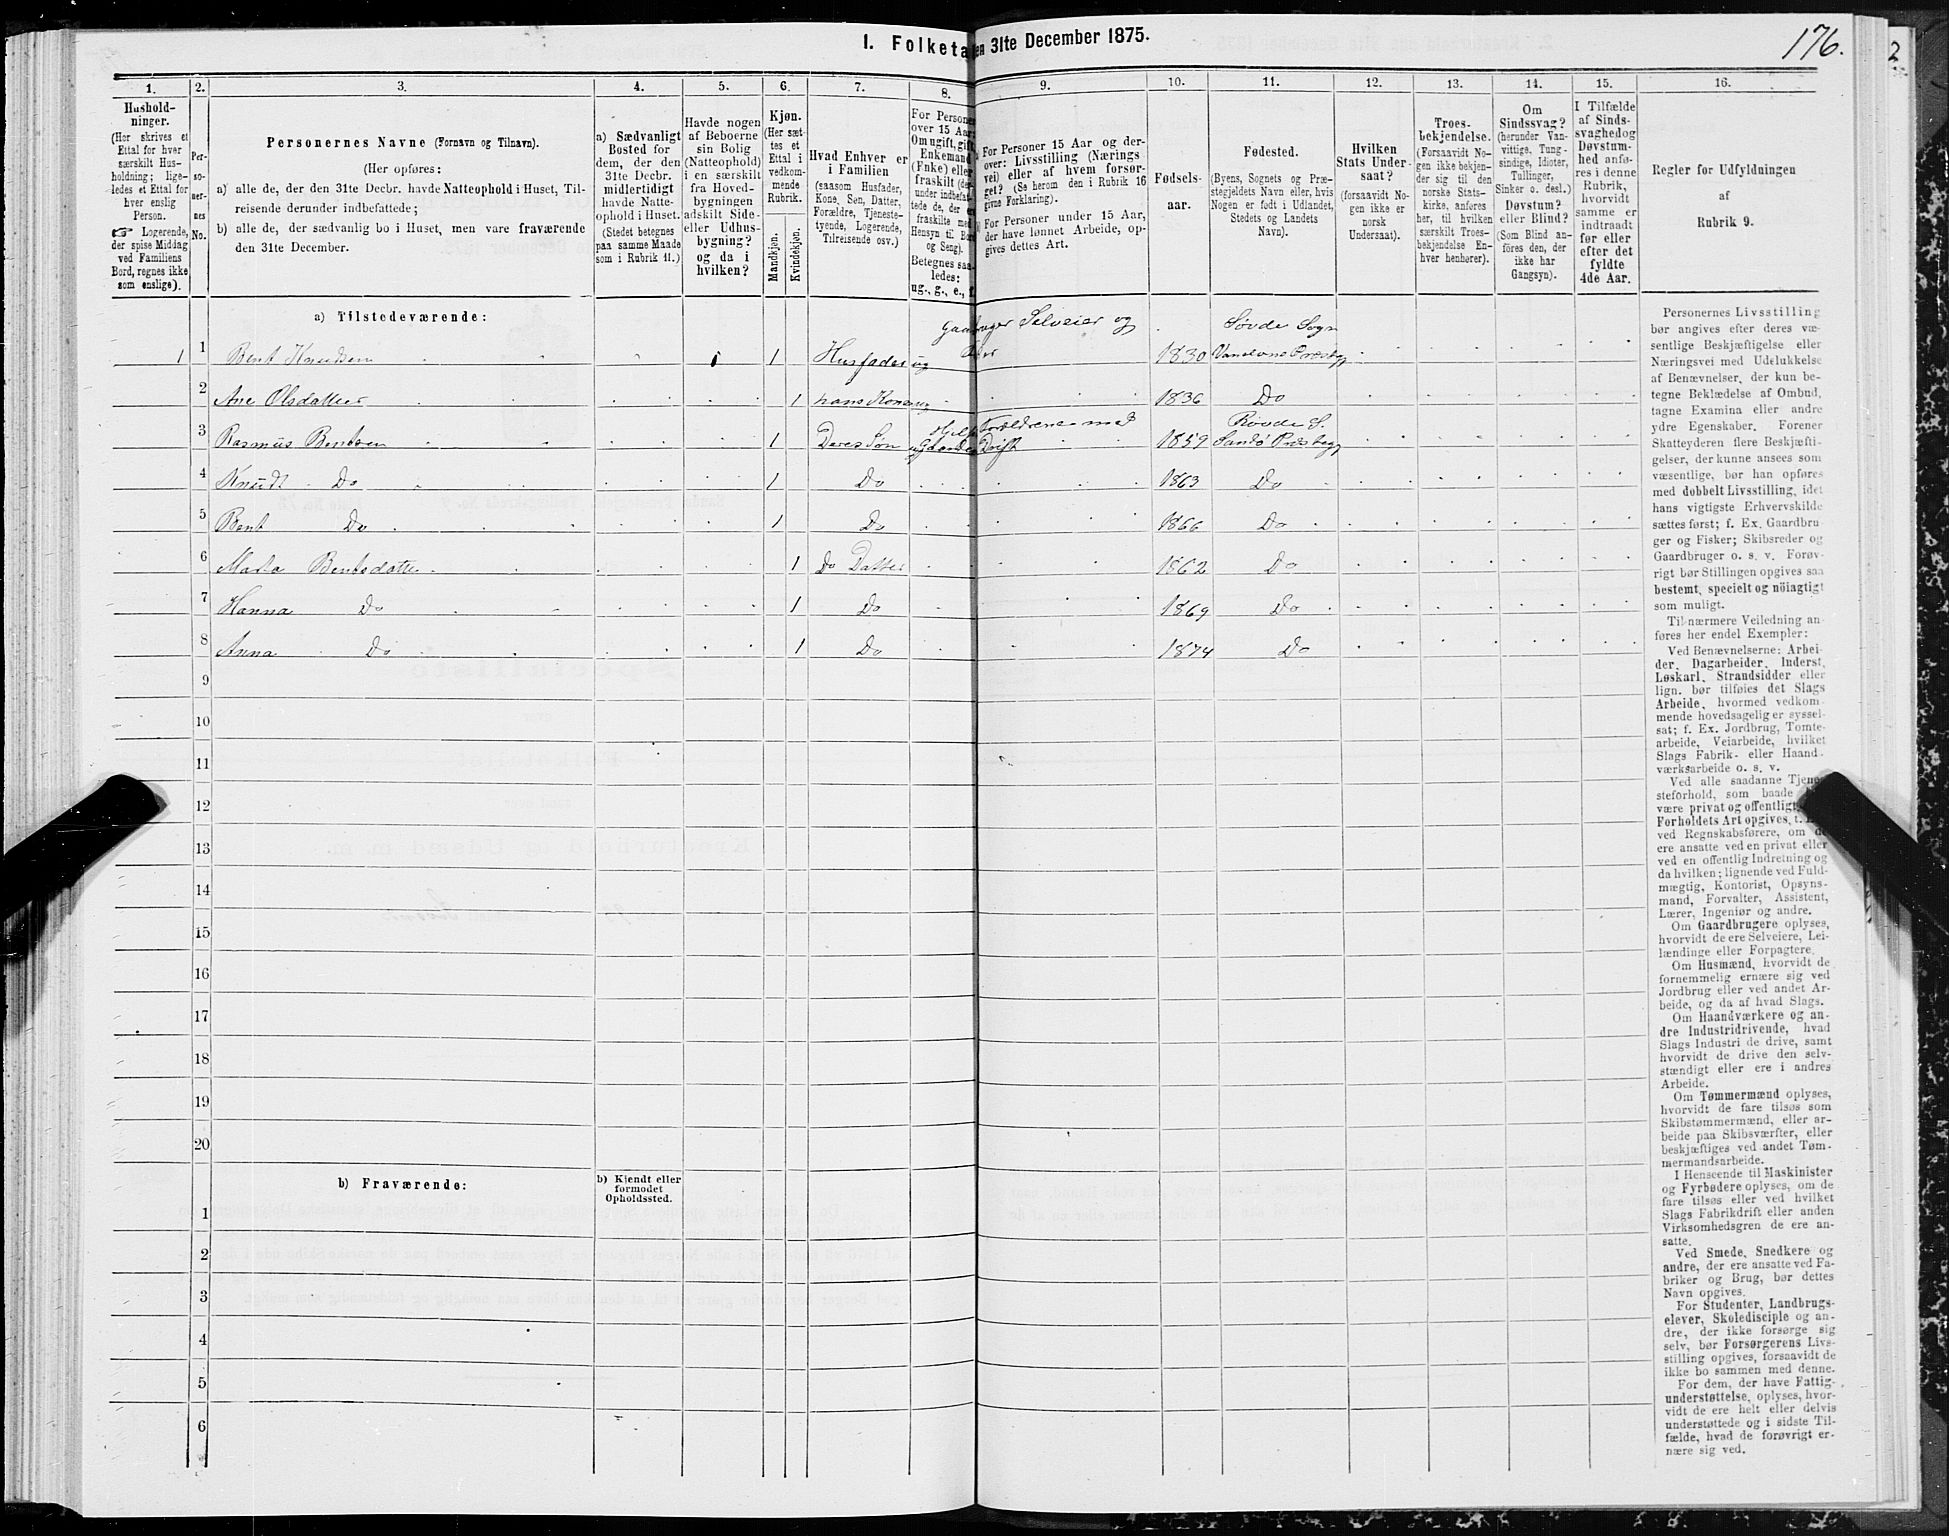 176.
2
1. Folketa
en 31te December 1875.
1. 2. 3. 4. 5. 6. 7. 8. 9. 10. 11. 12. 13. 14. 15. 16.
Hushold-
ninger.
(Her skrives et
Ettal for hver
særskilt Hus-
holdning; lige-
ledes et Ettal for
hver enslig
Person.
☞ Logerende,
der spise Middag
ved Familiens
Bord, regnes ikke
som enslige).
Per-
so-
ner-
nes
No.
Personernes Navne (Fornavn og Tilnavn).
(Her opføres:
a) alle de, der den 31te Decbr. havde Natteophold i Huset, Til-
reisende derunder indbefattede;
b) alle de, der sædvanlig bo i Huset, men vare fraværende
den 31te December.
a) Sædvanligt
Bosted for
dem, der den
31te Decbr.
midlertidigt
havde Natte-
ophold i Huset.
(Stedet betegnes
paa samme Maade
som i Rubrik 11.)
Havde nogen
af Beboerne
sin Bolig
(Natteophold)
i en særskilt
fra Hoved-
bygningen
adskilt Side-
eller Udhus-
bygning?
og da i
hvilken?
Kjøn.
(Her sæt-
tes et
Ettal i
vedkom-
mende
Rubrik.
Mandkjøn.
Kvindekjøn.
Hvad Enhver er
i Familien
(saasom Husfader,
Kone, Søn, Datter,
Forældre, Tjeneste-
tyende, Logerende,
Tilreisende osv.)
For Personer
over 15 Aar:
Om ugift, gift,
Enkemand
(Enke) eller
fraskilt (der-
under indbefat-
tede de, der ere
fraskilte med
Hensyn til Bord
og Seng).
Betegnes saa-
ledes:
ug., g., e., f.
For Personer 15 Aar og der-
over: Livsstilling (Nærings
vei) eller af hvem forsør-
get? (Se herom den i Rubrik 16
givne Forklaring).
For Personer under 15 Aar,
der have lønnet Arbeide, op-
gives dettes Art.
Fødsels-
aar.
Fødested.
(Byens, Sognets og Præ-
stegjeldets Navn eller, hvis
Nogen er født i Udlandet,
Stedets og Landets
Navn).
Hvilken
Stats Under-
saat?
(forsaavidt No-
gen ikke er
norsk
Undersaat).
Troes-
bekjendelse.
(Forsaavidt No-
gen ikke bekjen-
der sig til den
norske Stats-
kirke, anføres
her, til hvilken
særskilt Troes-
bekjendelse En-
hver henhører).
Om
Sindssvag?
(herunder Van-
vittige, Tung-
sindige, Idioter,
Tullinger,
Sinker o. desl.)
Døvstum?
eller Blind?
(Som Blind an-
føres den, der
ikke har
Gangsyn).
I Tilfælde
af Sinds-
svaghed og
Døvstum-
hed anfø-
res i denne
Rubrik,
hvorvidt
samme er
indtraadt
før eller
efter det
fyldte
4de Aar.
Regler for Udfyldningen
af
Rubrik 9.
a) Tilstedeværende:
1 1 Bent Knudsen 1 Husfader Selveier og 1830 Søvde Sogn
Vanelvns Præstegj
2 Ane Olsdatter 1 hans Kone 1836 Do
3 Rasmus Bentsen 1 Deres Søn Forældrene med Drift 1859 Rovde S.
Sandø Præstegj
4 Knudt Do 1 Do 1863 Do
5 Bent Do 1 Do 1866 Do
6 Marta Bentsdatte 1 Do Datter 1862 Do
7 Hanna Do 1 Do 1869 Do
8 Anna Do 1 Do 1874 Do
9
10
11
12
13
14
15
16
17
18
19
20
b) Fraværende:
b) Kjendt eller
formodet
Opholdssted.
1
2
3
4
5
6
Personernes Livsstilling
bør angives efter deres væ-
sentlige Beskjæftigelse eller
Næringsvei med Udelukkelse
af Benævnelser, der kun be-
tegne Beklædelse af Ombud,
tagne Examina eller andre
ydre Egenskaber. Forener
Skatteyderen flere Beskjæfti-
gelser, der kunne ansees som
væsentlige, bør han opføres
med dobbelt Livsstilling, idet
hans vigtigste Erhvervskilde
sættes først; f. Ex. Gaardbru-
ger og Fisker; Skibsreder og
Gaardbruger o. s. v. Forøv-
rigt bør Stillingen opgives saa
bestemt, specielt og nöiagtigt
som muligt.
Til nærmere Veiledning an-
føres her endel Exempler:
Ved Benævnelserne: Arbei-
der, Dagarbeider, Inderst,
Løskarl, Strandsidder eller
lign. bør tilføies det Slags
Arbeide, hvormed vedkom-
mende hovedsagelig er syssel-
sat; f. Ex. Jordbrug, Tomte-
arbeide, Veiarbeide, hvilket
Slags Fabrik- eller Haand-
værksarbeide o. s. v.
Ved alle saadanne Tjene-
steforhold, som baade
være privat og offentligt,
Forholdets Art opgives, t.
ved Regnskabsførere, om de
ere ansatte ved en privat eller
ved en offentlig Indretning og
da hvilken; lignende ved Fuld-
mægtig, Kontorist, Opsyns-
mand, Forvalter, Assistent,
Lærer, Ingeniør og andre.
Om Gaardbrugere oplyses,
hvorvidt de ere Selveiere, Lei-
lændinge eller Forpagtere.
Om Husmænd, hvorvidt de
fornemmelig ernære sig ved
Jordbrug eller ved andet Ar-
beide, og da af hvad Slags.
Om Haandværkere og an-
dre Industridrivende, hvad
Slags Industri de drive, samt
hvorvidt de drive den selv-
stændigt eller ere i andres
Arbeide.
Om Tømmermænd oplyses,
hvorvidt de fare tilsøs som
Skibstømmermænd, eller ar-
beide paa Skibsværfter, eller
beskjæftiges ved andet Tøm-
mermandsarbeide.
I Henseende til Maskinister
og Fyrbødere oplyses, om de
fare tilsøs eller ved hvilket
Slags Fabrikdrift eller anden
Virksomhedsgren de ere an-
satte.
Ved Smede, Snedkere og
andre, der ere ansatte ved Fa-
briker og Brug, bør dettes
Navn opgives.
For Studenter, Landbrugs-
elever, Skoledisciple og an-
dre, der ikke forsørge sig
selv, bør Forsørgerens Livs-
stilling opgives, forsaavidt de
ikke bo sammen med denne.
For dem, der have Fattig-
understøttelse, oplyses, hvor-
vidt de ere helt eller delvis
understøttede og i sidste Til-
fælde, hvad de forøvrigt er-
nære sig ved.